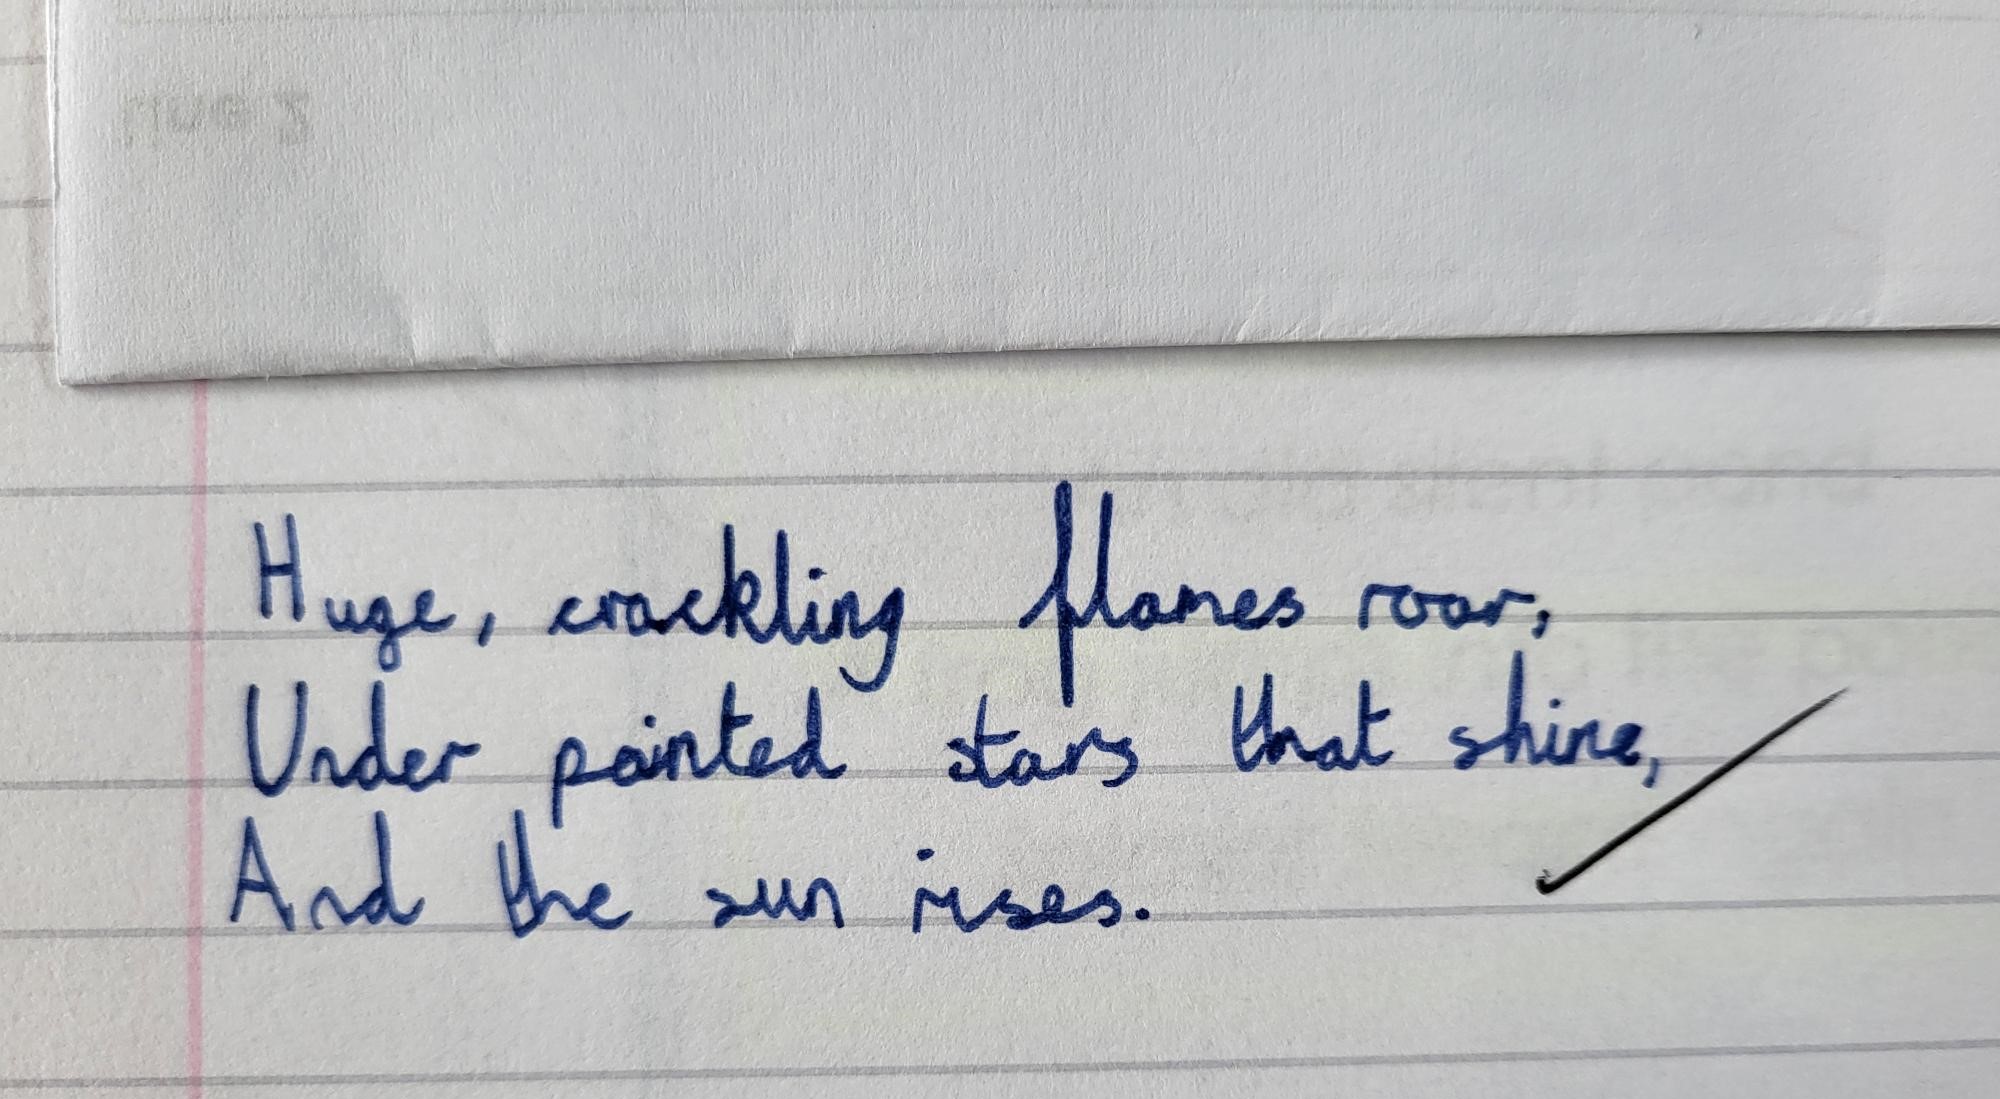 Huge, crackling flames roar,
Under painted stars that shine,
And the sun rises.